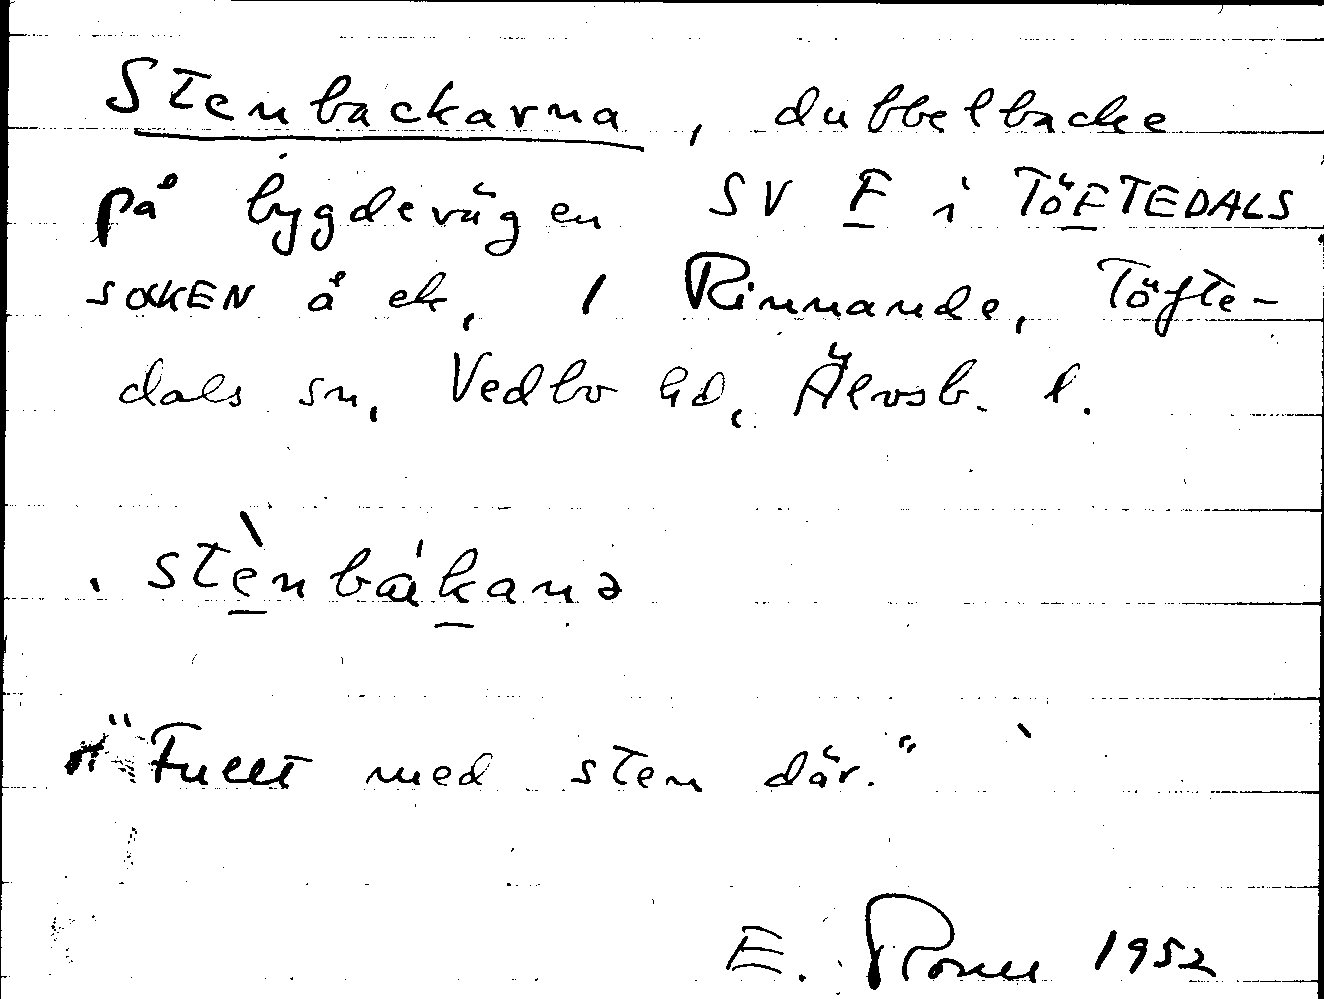 Stenbackarna, dubbelbacke
på bygdevägen SV F i TÖFTEDALS
SOCKEN å ek, 1 Rinnande, Töfte-
dals sn, Vedbo hd, Älvsb. l.
stè̱nbáḵanə
"Fullt med sten där."
E. 1952